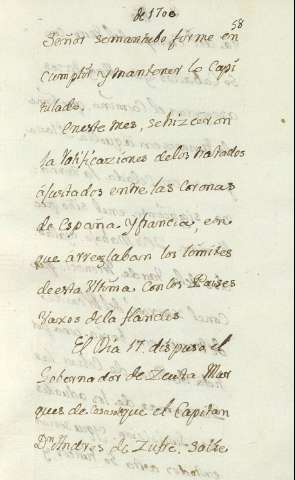 de 1700
58
Señor semantubo firme en
cumplir y mantener lo Capi
tulado.
En este mes, se hizieron
la Ratificaziones delos tratados
ajustados entre las Coronas
de España y francia, en
que arreglaban los limites
de esta Ultima con los Paises
Vaxos de la flandes
El Dia 17. dispuso el
Gobernador de Zeuta Mar
ques de que el Capitan
Dn Andres de Zufre, salie